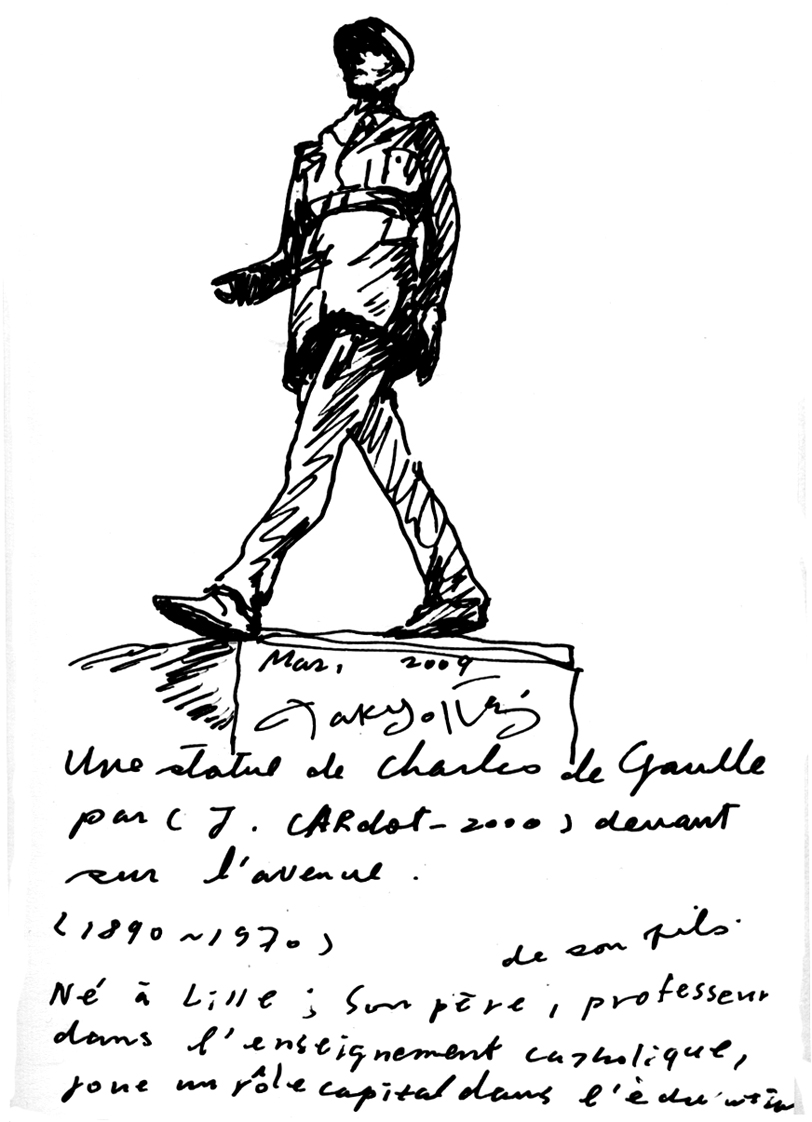 Mar. 2009
Une statue de Charles de Gaulle
par ( J. CARdot - 2000 ) devant
sur l'avenue.
(1890 ~ 1970)
de son fils.
Né à Lille ; Son père, professeur
dans l'enseignement catholique,
joue un rôle capital dans l'édu